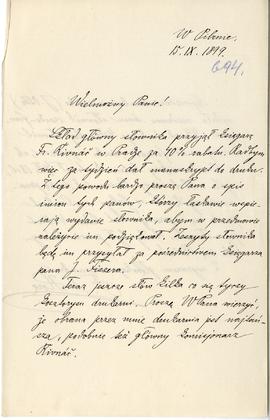 W Pilznie
15. IX. 1899.
694.
Wielmożny Panie!
Skład główny słownika przyjął księgarz
Fr. Řivnáč w Pradze za 40% rabatu. Radbym
więc za tydzień dał manuskrypt do druku.
Z tego powodu bardzo proszę Pana o spis
imion tych panów, którzy łaskawie wspie-
rają wydanie słownika, abym w przedmowie
należycie im podziękował. Zeszyty słownika
będę im przysyłał za pośrednictwem księgarza
pana J.
Teraz jeszcze słów kilka co się tyczy
drukarni. Proszę WPana wierzyć,
że obrana przez mnie drukarnia jest najtań-
sza, podobnie też główny komisjonarz
Řivnáč.